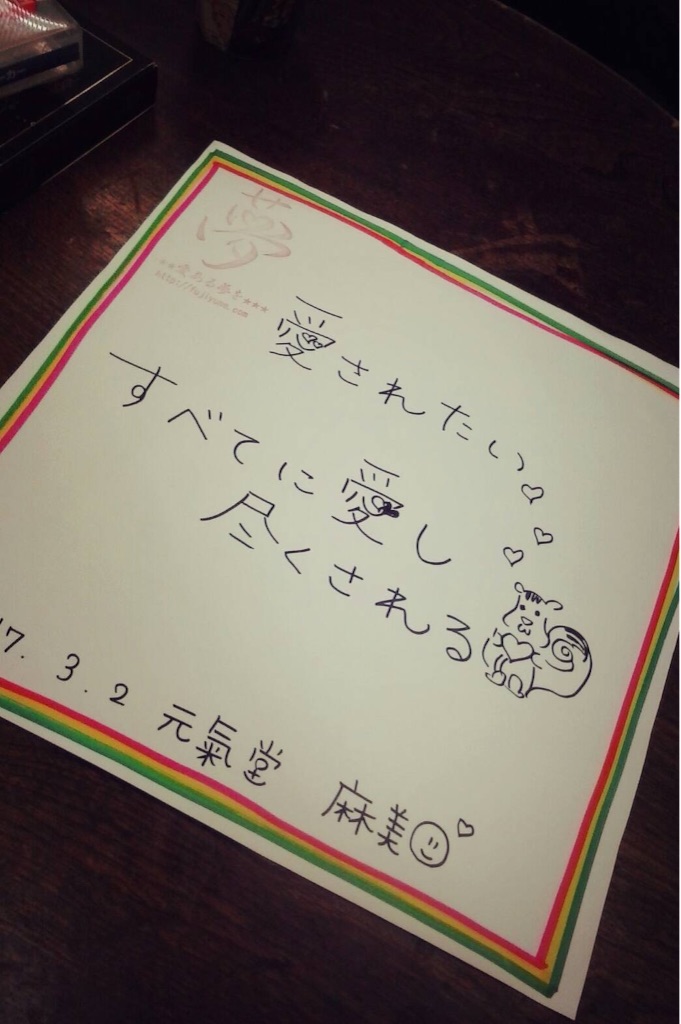 ーカー
夢
★★愛ある夢を★★★
http://fujiyume.com
愛されたい
すべてに愛し
尽くされる
17.3.2 元氣堂 麻美